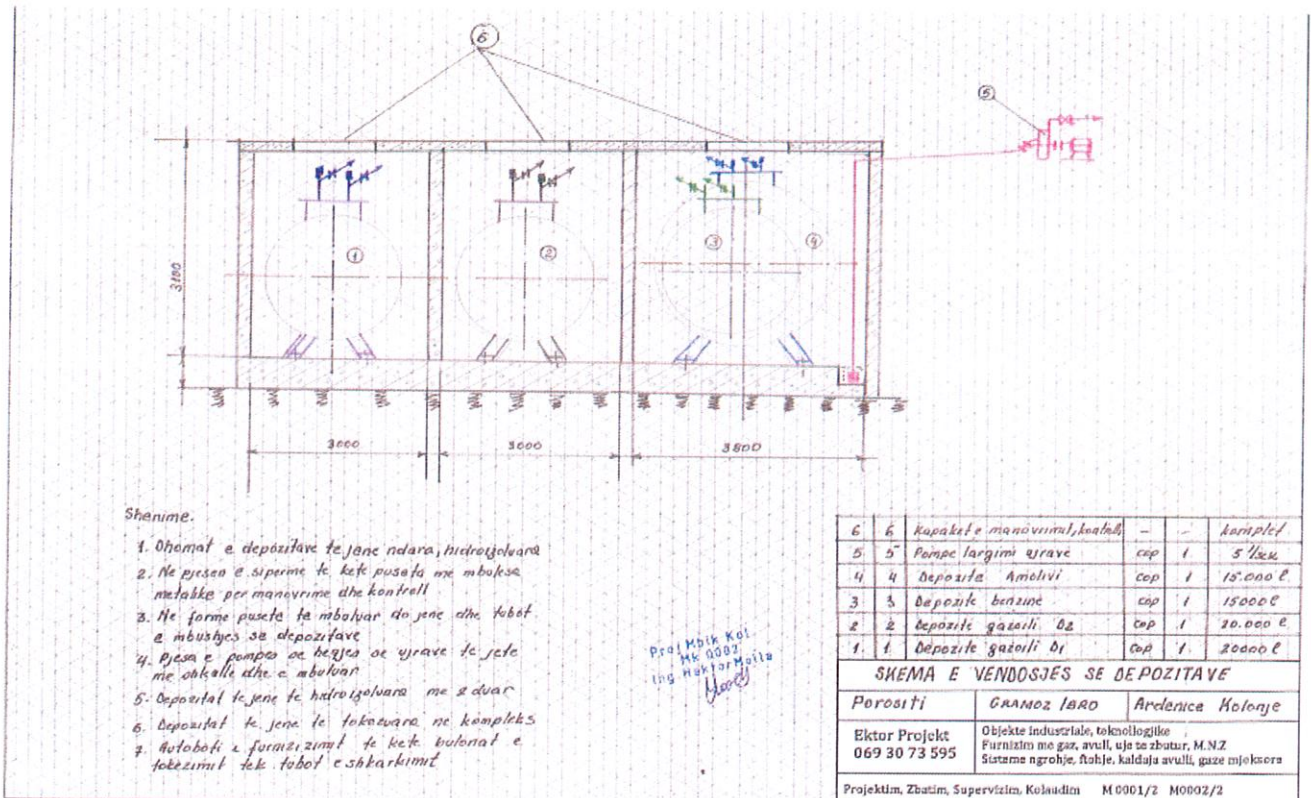 6
5
1
2
3
4
3100
3000
3000
3800
Shenime.
1. Dhomat e depozitave te jene ndara, hidroizoluara
2. Ne pjesen e siperme te kete puseta me mbulesa
metalike per manovrime dhe kontroll
3. Ne forme pusete te mbuluar do jene dhe tubot
e mbushjes se depozitave
4. Pjesa e pompes se heqjes se ujrave te jete
me shkalle dhe e mbuluar
5. Depozitat te jene te hidroizoluara me 2 duar
6. Depozitat te jene te tokezuara ne kompleks
7. Autoboti i furnizimit te kete bulonat e
tokezimit tek tubot e shkarkimit
Prof Mbik Kol
MK 0002
Ing Hektor Moita
6 6 Kapaket e manovrimit, kontrolli - - komplet
5 5 Pompe largimi ujrave cop 1 5 l/sek
4 4 Depozita Amolivi cop 1 15.000 l
3 3 Depozite benzine cop 1 15000 l
2 2 Depozite gazoili D2 cop 1 20.000 l
1 1 Depozite gazoili D1 cop 1 20000 l
SKEMA E VENDOSJES SE DEPOZITAVE
Porositi GRAMOZ IBRO Ardenice Kolonje
Ektor Projekt
069 30 73 595
Objekte industriale, teknollogjike
Furnizim me gaz, avull, uje te zbutur, M.N.Z
Sisteme ngrohje, ftohje, kaldaja avulli, gaze mjeksore
Projektim, Zbatim, Supervizim, Kolaudim M 0001/2 M0002/2